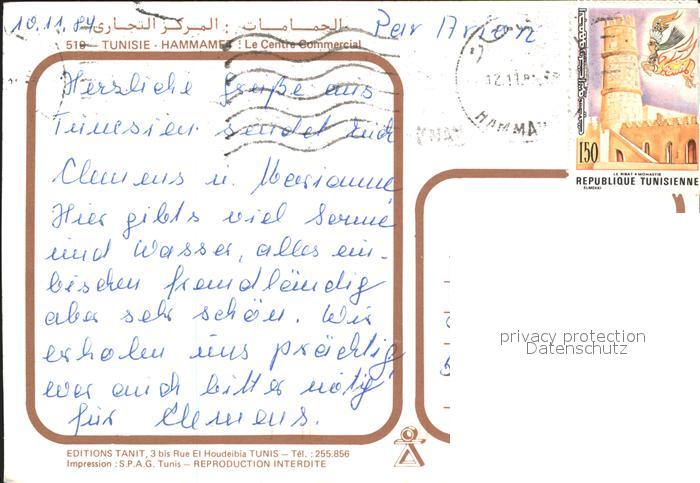 10.11.84
الحمامات : المركز التجاري
Par Avion
510 - TUNISIE - HAMMAMET : Le Centre Commercial
Herzliche Grüße aus
Tunesien sendet Euch
Clemens u. Marianne
Hier gibts viel Sonne
und Wasser, alles ein
bischen fremdländig
aber sehr schön. Wir
erholen uns prächtig
war auch bitter nötig
für Clemens.
12.11.8
HAMMA
150
LE RIBAT A MONASTIR
REPUBLIQUE TUNISIENNE
ELMEKKI
privacy protection
Datenschutz
EDITIONS TANIT, 3 bis Rue El Houdeibia TUNIS - Tél. : 255.856
Impression : S.P.A.G. Tunis - REPRODUCTION INTERDITE